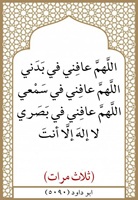 اللَّهمَّ عافِني في بَدَني
اللَّهمَّ عافِني في سَمْعي
اللَّهمَّ عافِني في بَصَري
لا إلهَ إلَّا أنتَ
(ثلاث مرات)
ابو داود (٥٠٩٠)